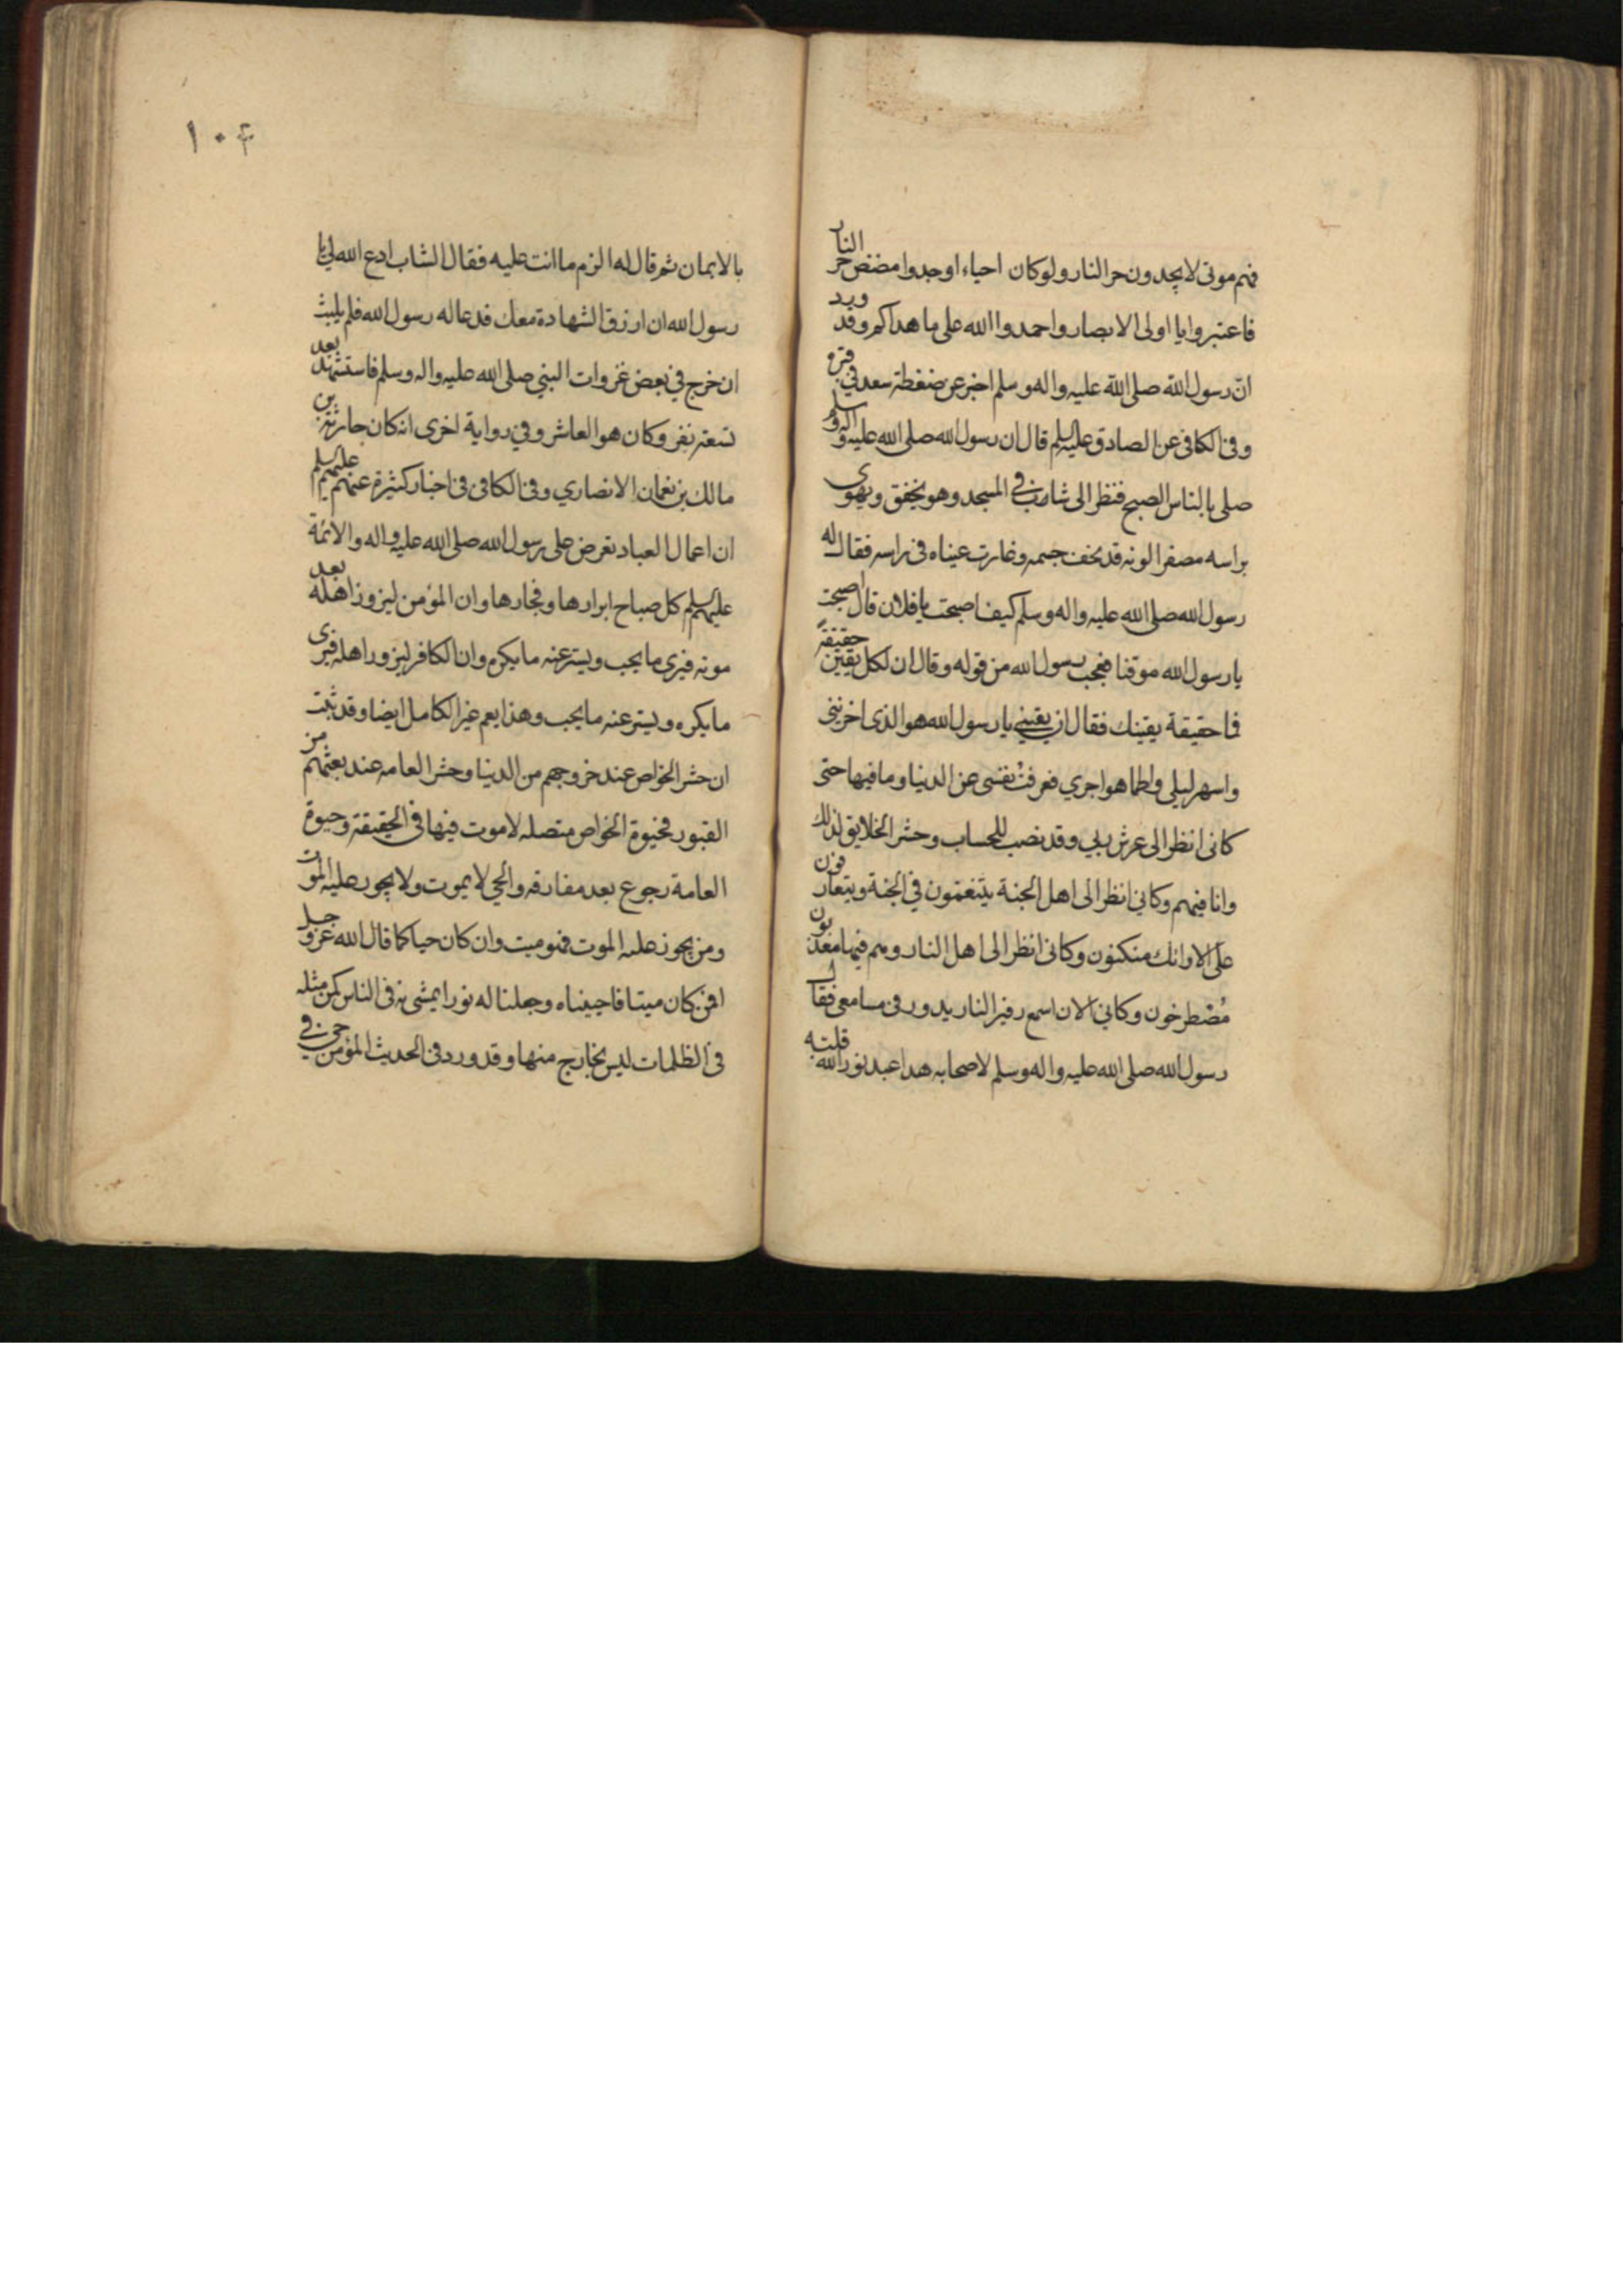 فهم موتى لا يجدون حر النار ولو كان احياء اوجدوا مضض حر النار
فاعتبروا يا اولى الابصار واحمدوا الله على ما هداكم وقد ورد
ان رسول الله صلى الله عليه واله وسلم اخبر عن ضغطة سعد في قبره
وفى الكافى عن الصادق عليه السلم قال ان رسول الله صلى الله عليه واله وسلم
صلى بالناس الصبح فنظر الى شاب فى المسجد وهو يخفق ويهوى
براسه مصفرا لونه قد نحف جسمه وغارت عيناه فى راسه فقال له
رسول الله صلى الله عليه واله وسلم كيف اصبحت يا فلان قال اصبحت
يا رسول الله موقنا فعجب رسول الله من قوله وقال ان لكل يقين حقيقة
فما حقيقة يقينك فقال ان يقينى يا رسول الله هو الذى اخزننى
واسهر ليلى واظما هواجري فعرفت نفسى عن الدنيا وما فيها حتى
كانى انظر الى عرش ربي وقد نصب للحساب وحشر الخلايق لذلك
وانا فيهم وكاني انظر الى اهل الجنة يتنعمون في الجنة ويتعارفون
على الارائك متكئون وكانى انظر الى اهل النار وهم فيها معذبون
مصطرخون وكانى الان اسمع زفير النار يدور فى مسامعى فقال
رسول الله صلى الله عليه واله وسلم لاصحابه هذا عبد نور الله قلبه
١٠۴
بالايمان ثم قال له الزم ما انت عليه فقال الشاب ادع الله لي يا
رسول الله ان ارزق الشهادة معك فدعا له رسول الله فلم يلبث
ان خرج في بعض غزوات النبي صلى الله عليه واله وسلم فاستشهد بعد
تسعة نفر وكان هو العاشر وفي رواية اخرى انه كان حارثة بن
مالك بن نعمان الانصاري وفى الكافى فى اخبار كثيرة عنهم عليهم السلم
ان اعمال العباد تعرض على رسول الله صلى الله عليه واله والائمة
عليهم السلم كل صباح ابرارها وفجارها وان المؤمن ليزور اهله بعد
موته فيرى ما يحب ويستر عنه ما يكره وان الكافر ليزور اهله فيرى
ما يكره ويستر عنه ما يحب وهذا يعم غير الكامل ايضا وقد ثبت
ان حشر الخواص عند خروجهم من الدنيا وحشر العامه عند بعثهم من
القبور فحيوة الخواص متصله لا موت فيها فى الحقيقة وحيوة
العامة رجوع بعد مفارقه والحي لا يموت ولا يجوز عليه الموت
ومن يجوز عليه الموت فهو ميت وان كان حيا كما قال الله عز وجل
افمن كان ميتا فاحييناه وجعلنا له نورا يمشى به فى الناس كمن مثله
فى الظلمات ليس بخارج منها وقد ورد فى الحديث المؤمن حى في